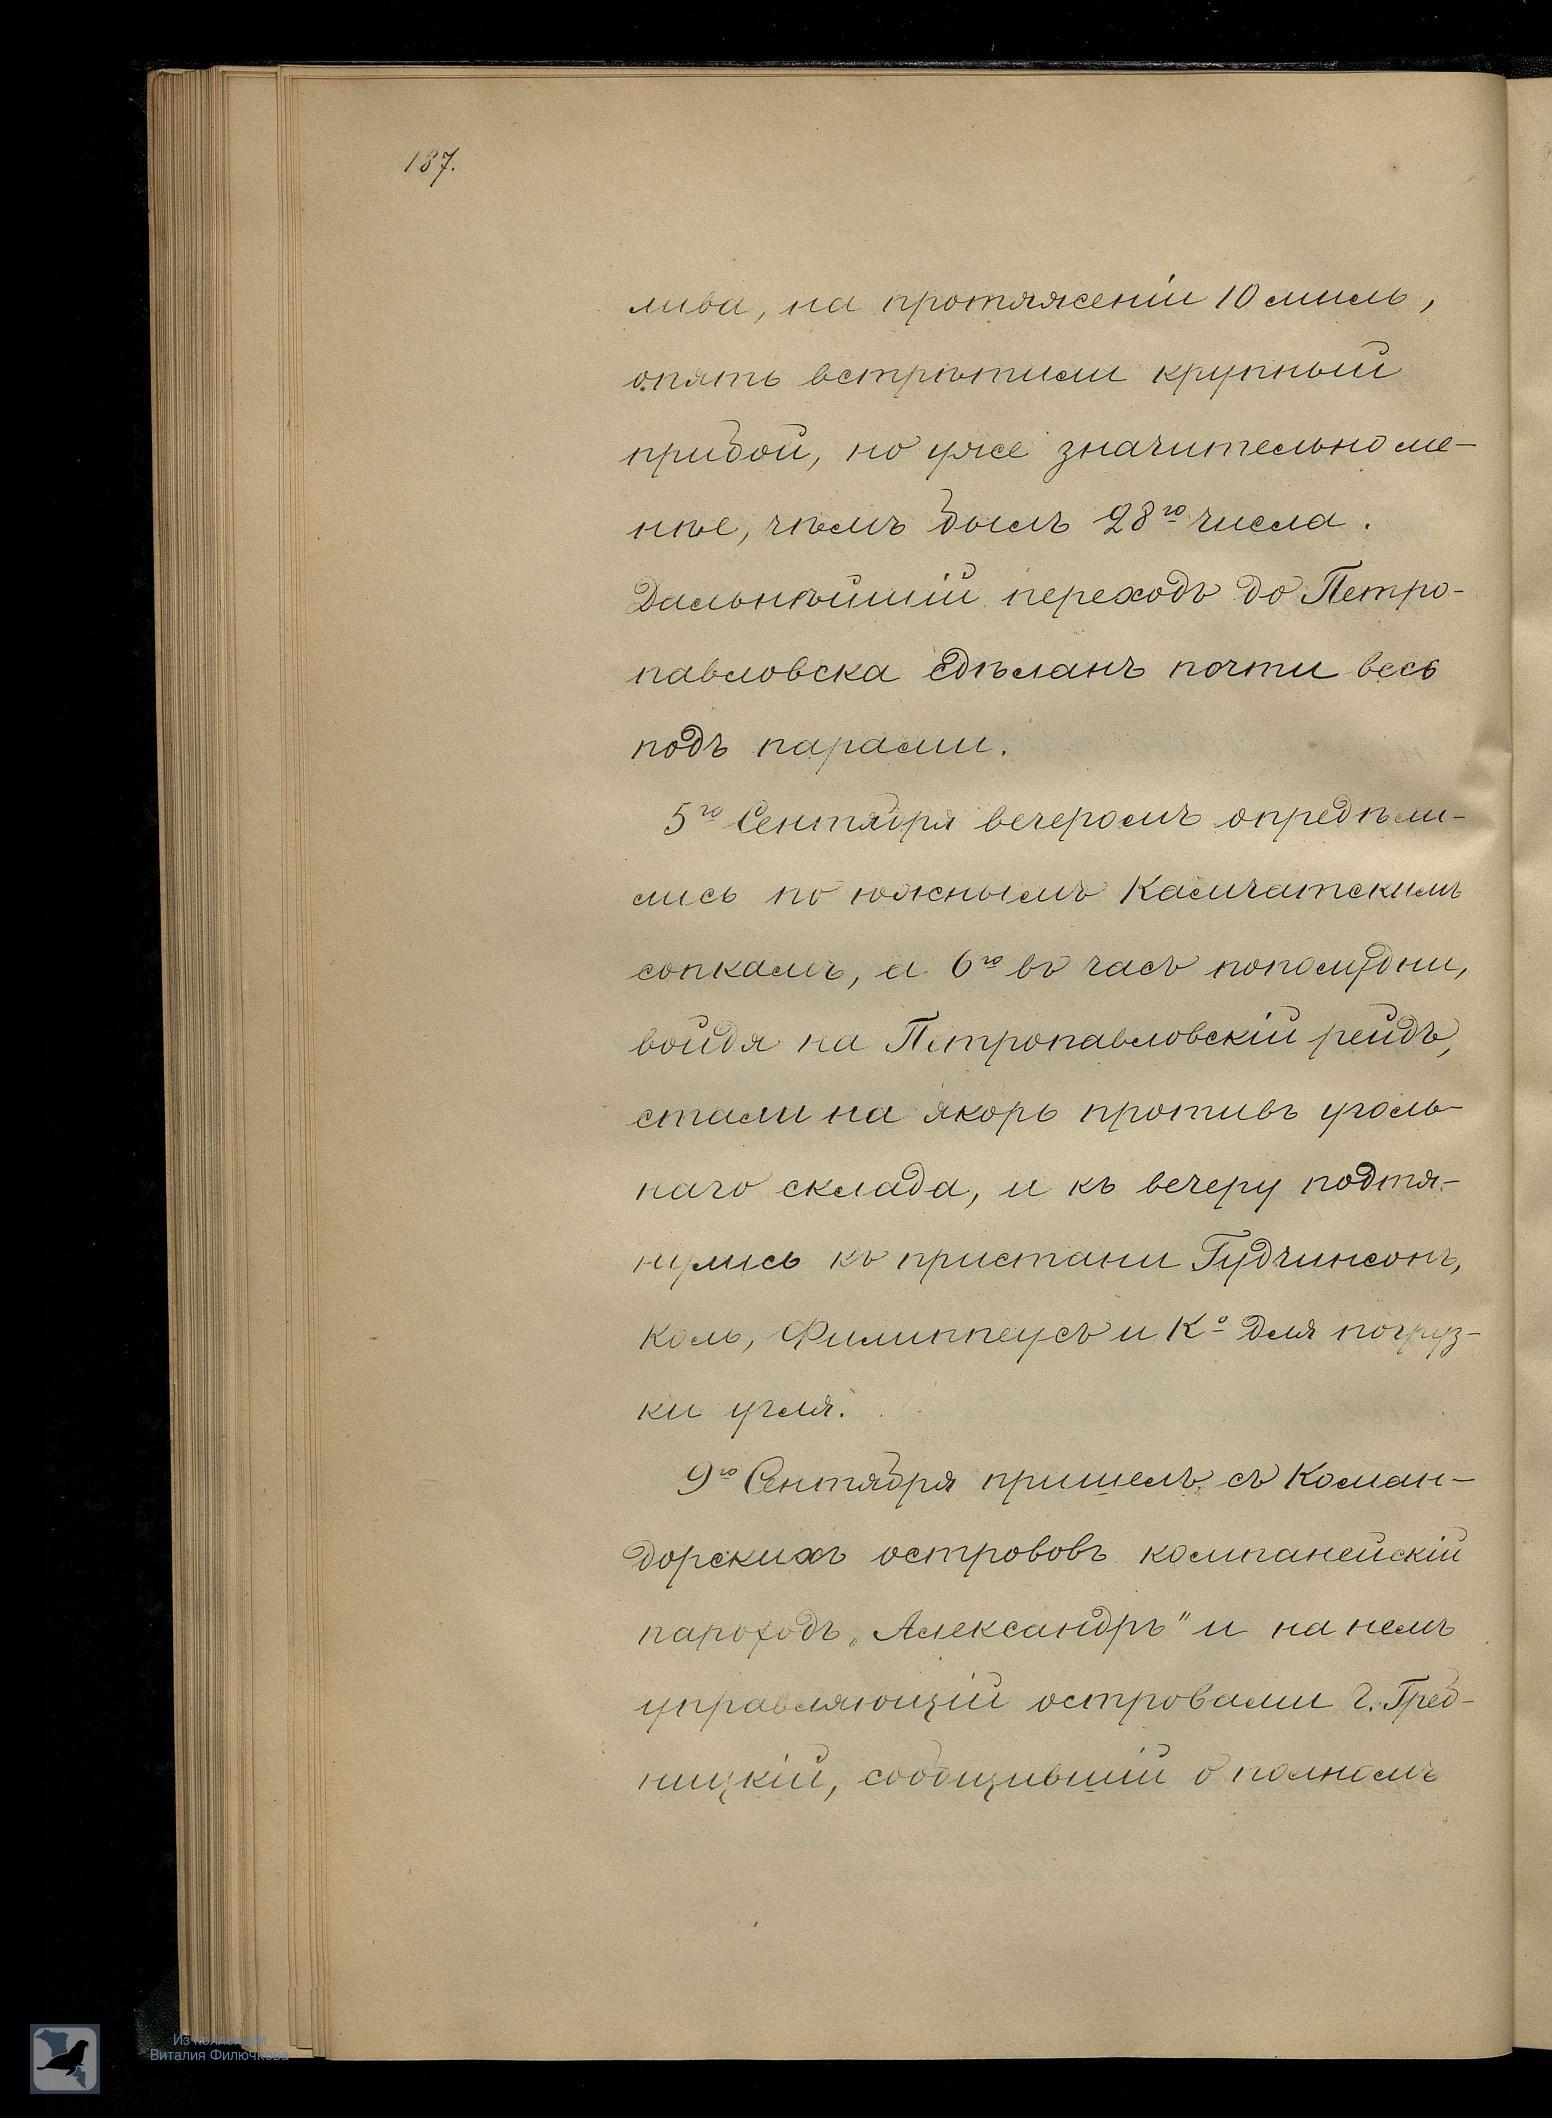 187.
лива, на протяженіи 10 миль,
опять встрѣтили крупный
прибой, но уже значительно ме-
нѣе, чѣмъ былъ 28го числа.
Дальнѣйшій переходъ до Петро-
павловска сдѣланъ почти весь
подъ парами.
5го Сентября вечеромъ опредѣли-
лись по южнымъ Камчатскимъ
сопкамъ, а 6го въ часъ пополудни,
войдя на Петропавловскій рейдъ,
стали на якорь противъ уголь-
наго склада, и къ вечеру подтя-
нулись къ пристани Гудчинсонъ,
Коль, Филиппеусъ и Ко для погруз-
ки угля.
9го Сентября пришелъ съ Коман-
дорскихъ острововъ компанейскій
пароходъ „Александръ" и на немъ
управляющій островами г. Греб-
ницкій, сообщившій о полномъ
Из коллекции
Виталия Филючкова